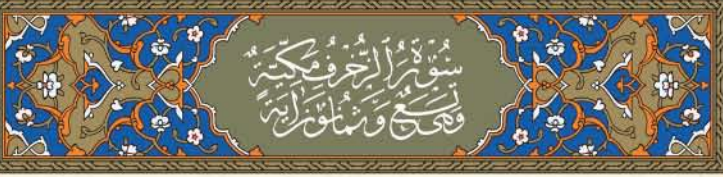 سُورَةُ الزُّخْرُفِ مَكِّيَّةٌ
وَهِيَ تِسْعٌ وَثَمَانُونَ آيَةً